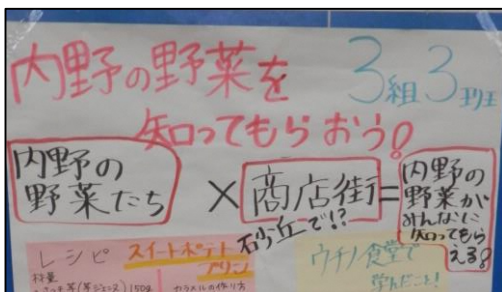 内野の野菜を
3組3班
知ってもらおう!
内野の
野菜たち
×
商店街
=
内野の
野菜が
みんなに
知ってもら
える!
砂丘で!?
レシピ スイートポテト
プリン
材量
カラメルの作り方
ウチノ食堂で
学んだこと!